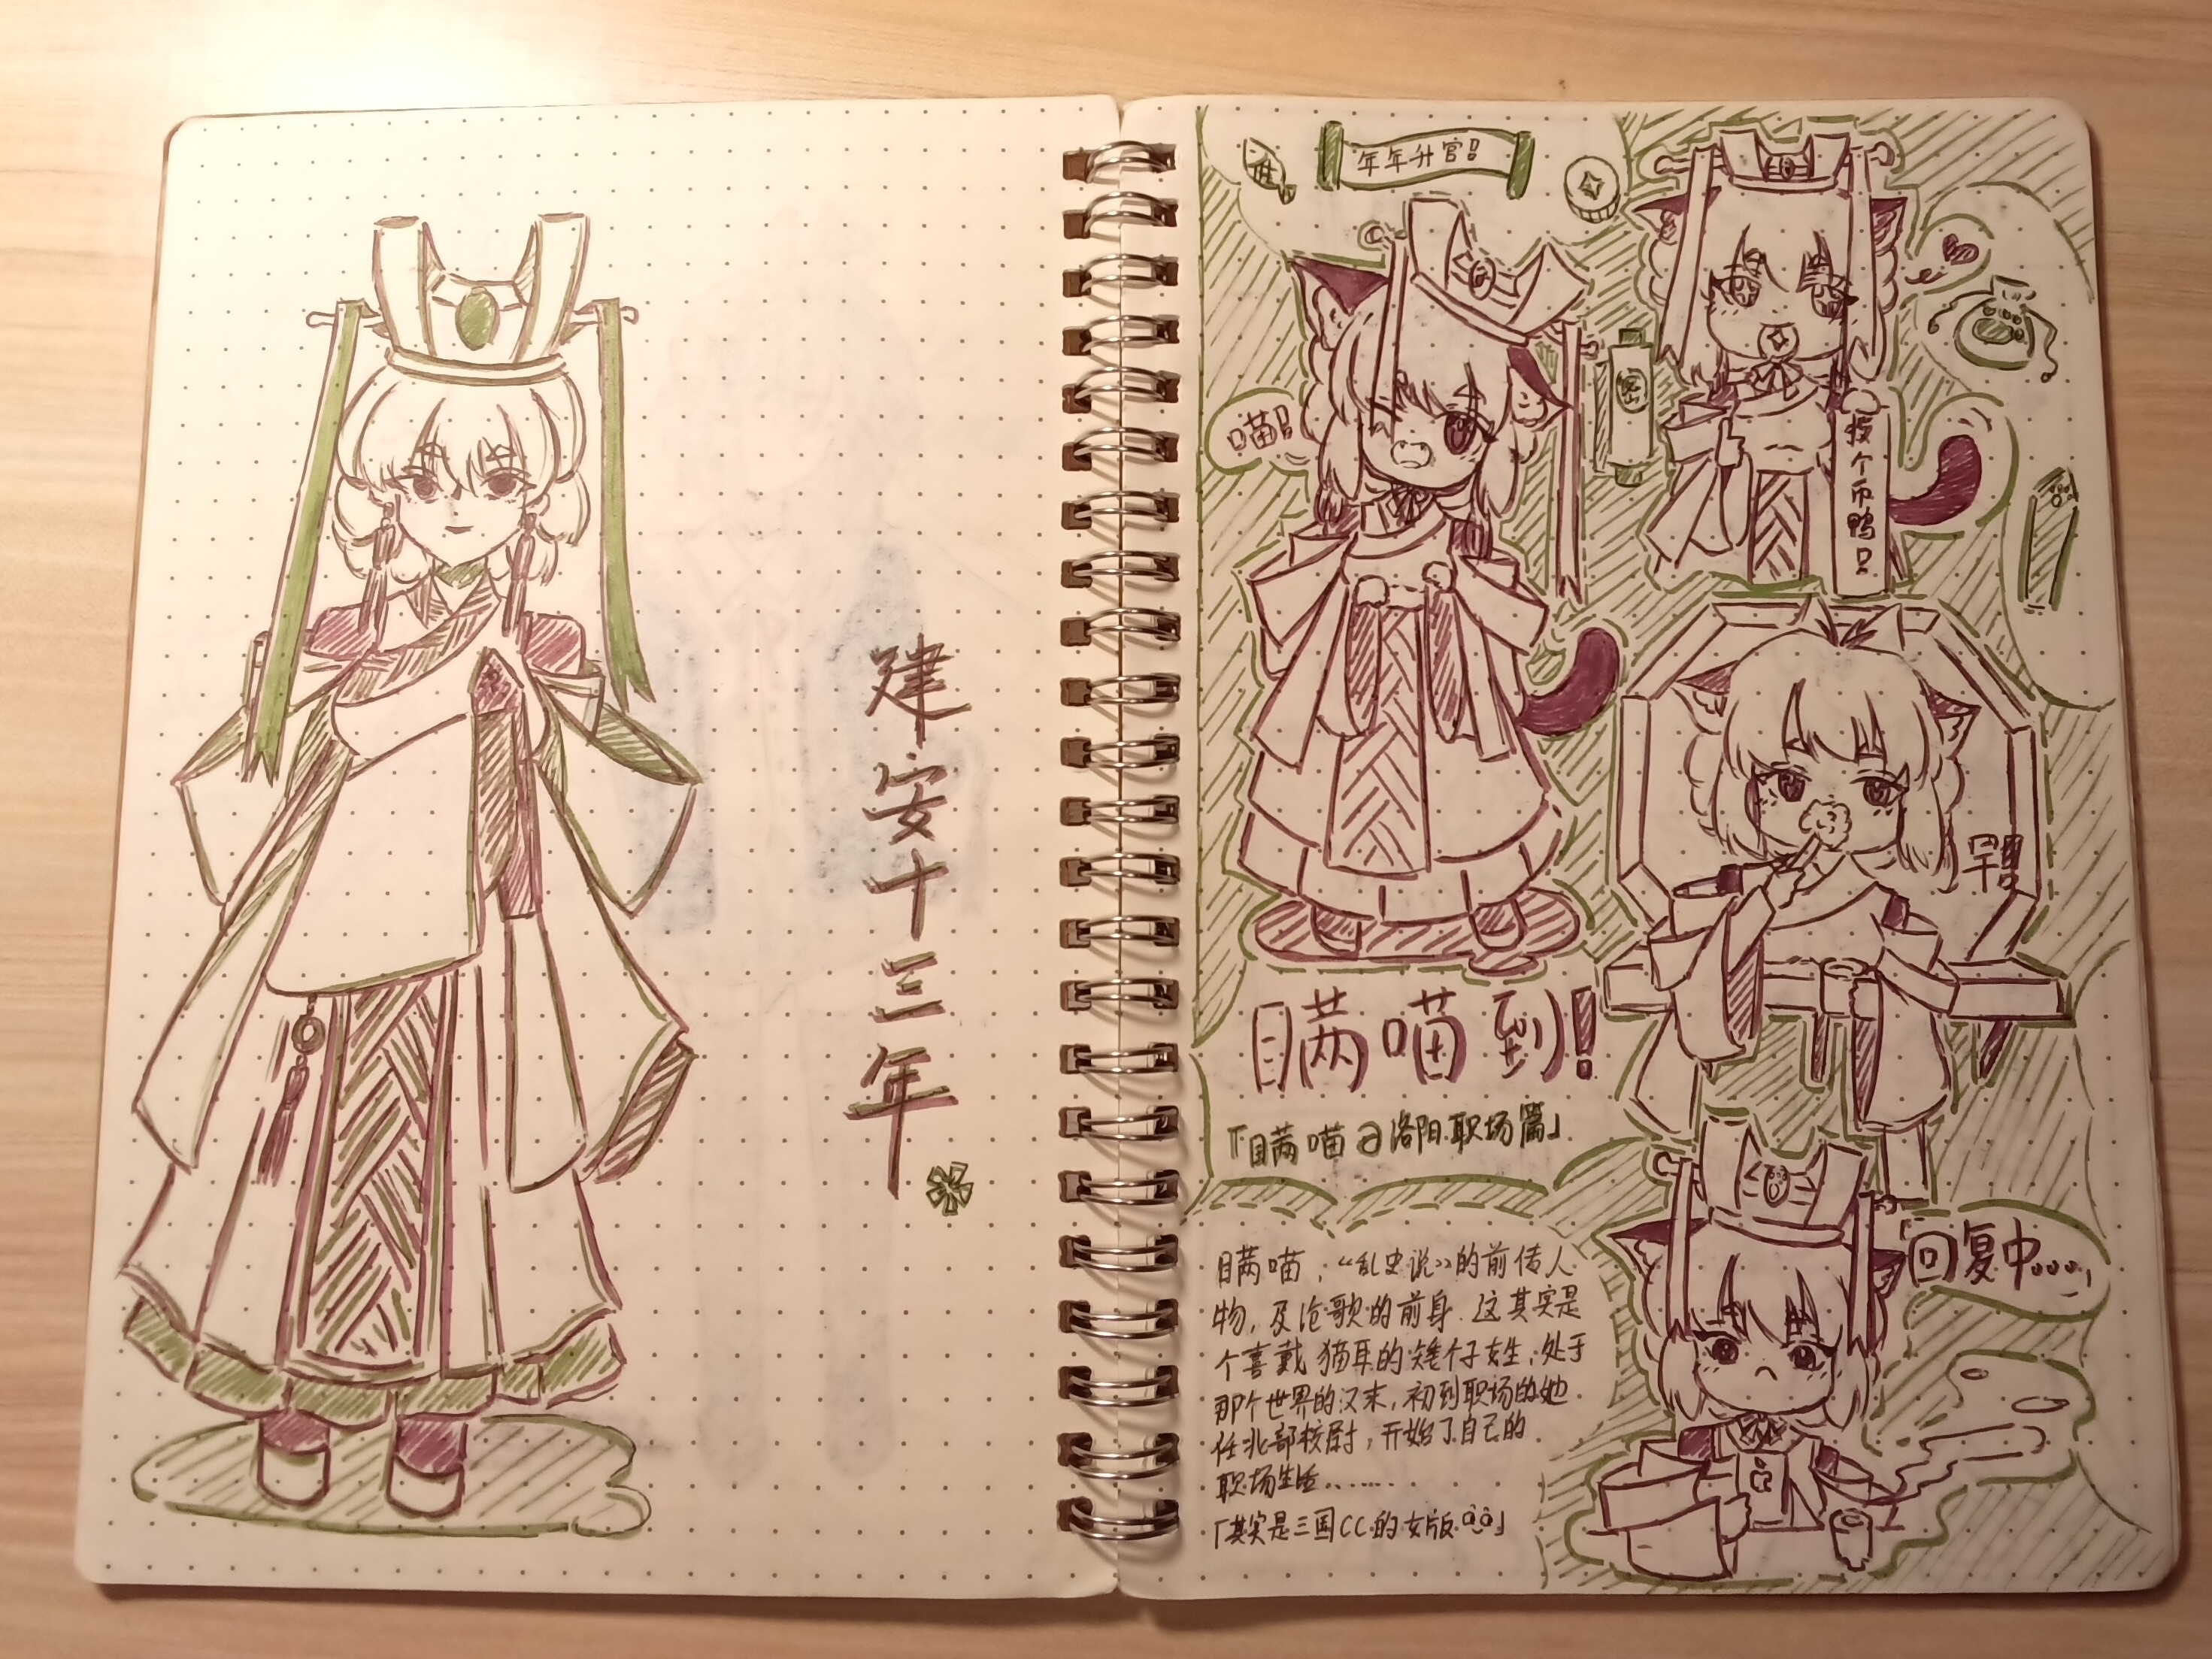 建安十三年
年年升官!
喵!
投个币鸭!
早!
瞒喵到!
「瞒喵@洛阳职场篇」
回复中。。。,
瞒喵,“乱史说”的前传人
物,及沧歌的前身.这其实是
个喜戴猫耳的矮个子女生,处于
那个世界的汉末,初到职场的她
任北部校尉,开始了自己的
职场生活.......
「其实是三国CC的女版」